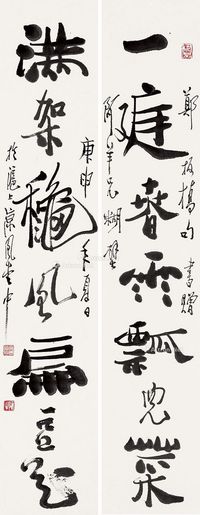 一庭春雨瓢兒菜
鄭板橋句書贈
兄糊壁
滿架穐風扁豆花
庚申年夏日
於滬上涼風堂中